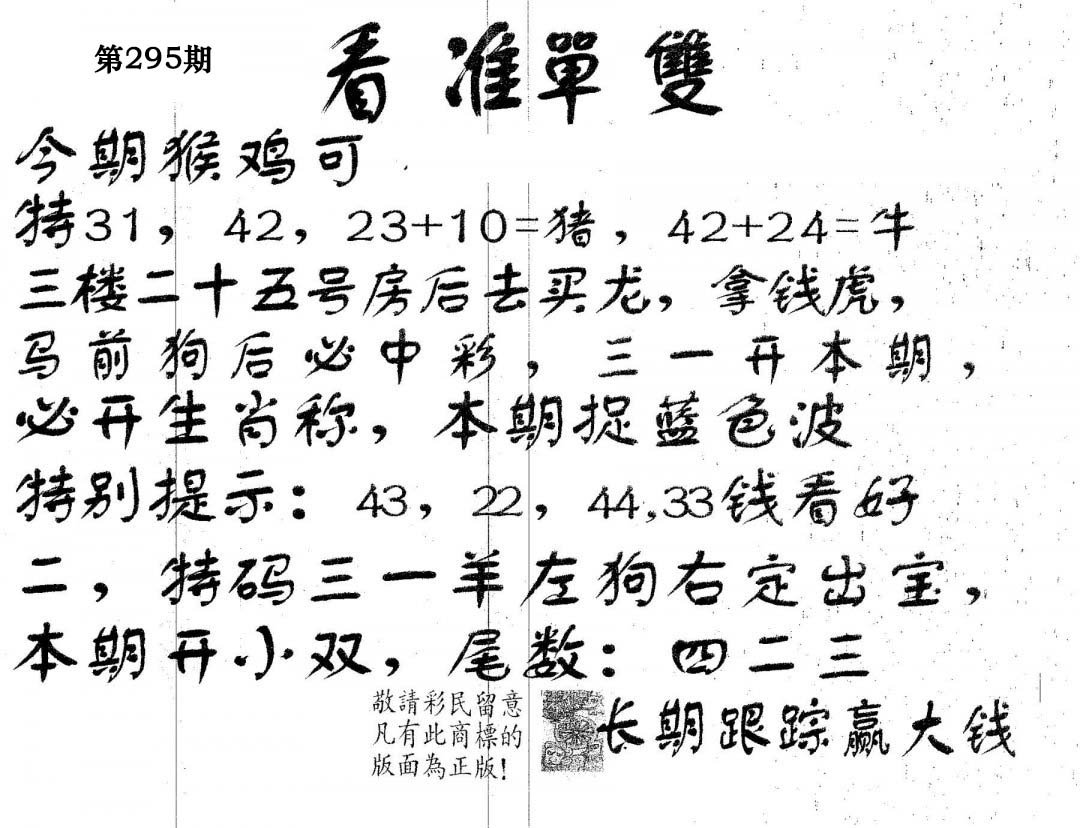 第295期
看准單雙
今期猴鸡可
特31，42，23+10=猪，42+24=牛
三楼二十五号房后去买龙，拿钱虎，
马前狗后必中彩，三一开本期，
必开生肖称，本期捉蓝色波
特别提示：43，22，44,33钱看好
二，特码三一羊左狗右定出宝，
本期开小双，尾数：四二三
敬請彩民留意
凡有此商標的
版面為正版！
长期跟踪赢大钱